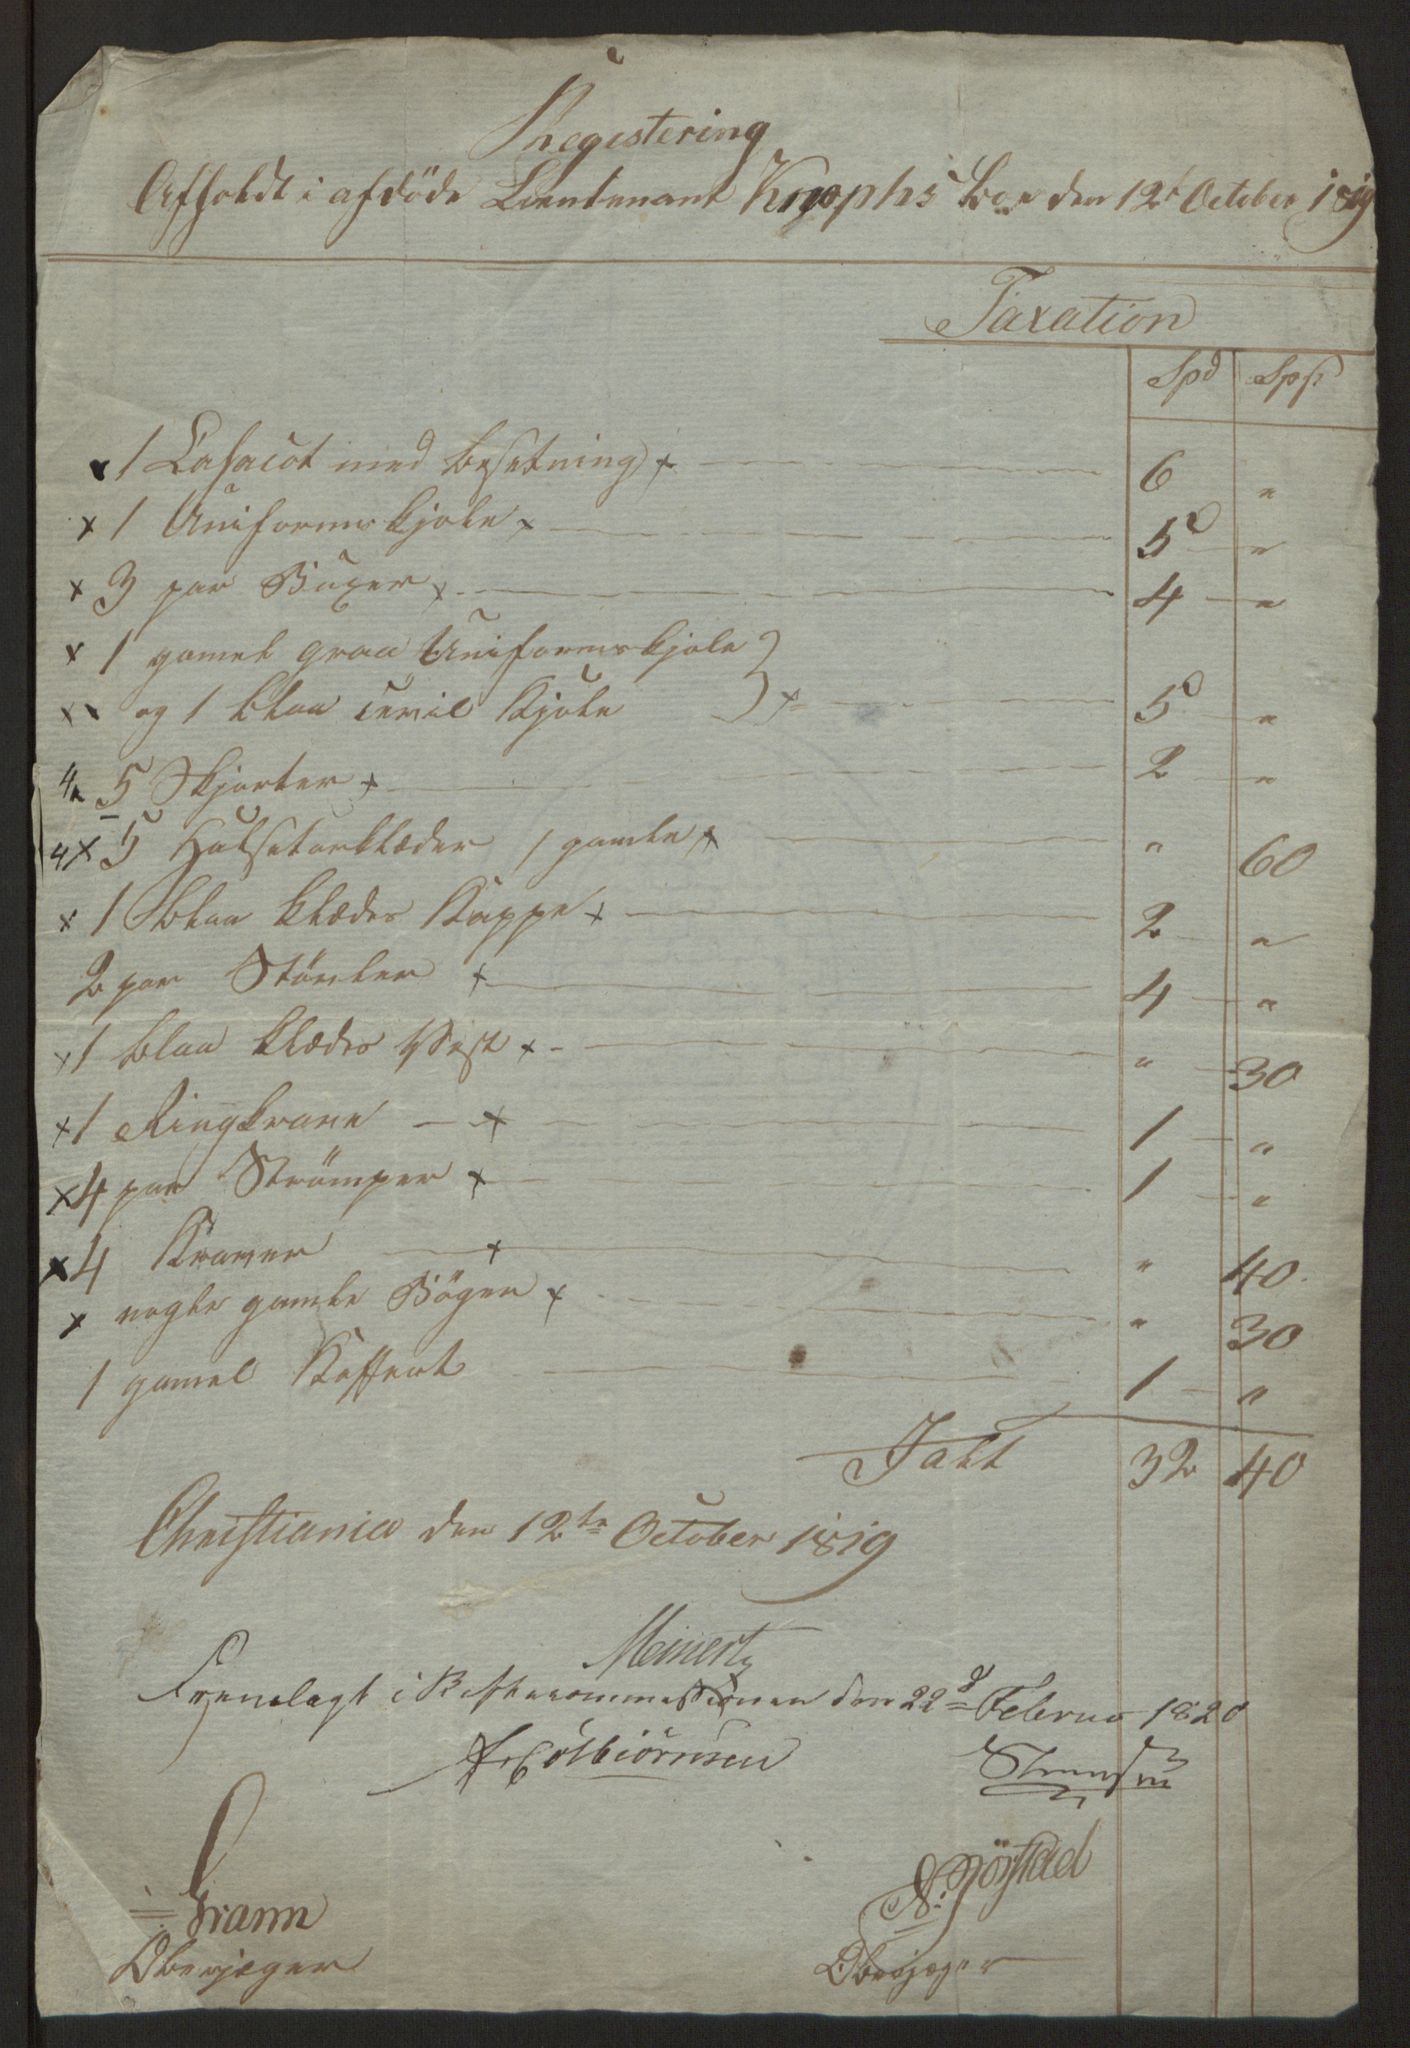 Registering
Afholdt i afdöde Lieutenant Knophs Boe den 12t October 1819
Taxation
Spd Sps.
x 1 Casacot med Besetning x 6 "
x 1 Uniformskjole x 5 "
x 3 par Buxer x 4 "
x 1 gamel graa Uniformskjole
x x og 1 blaa civil Kjole x 5 "
4 5 Skjorter x 2 "
4 x 5 Halsetørklæder 1 gamle x " 60
x 1 Blaa klædes Kappe x 2 "
2 par Stövler x 4 "
x 1 blaa klædes Vest x " 30
x 1 Ringkrave x 1 "
x 4 par Strömper x 1 "
x 4 Kraver x " 40
x nogle gamle Böger x " 30
1 gamel Koffert 1 "
Talt 32 40
Christiania den 12te October 1819
Meinertz
Fremlagt i Skiftecommissionen den 22d Februar 1820
Colbiörnsen
Obersjæger
N: Börstad
Obersjæger